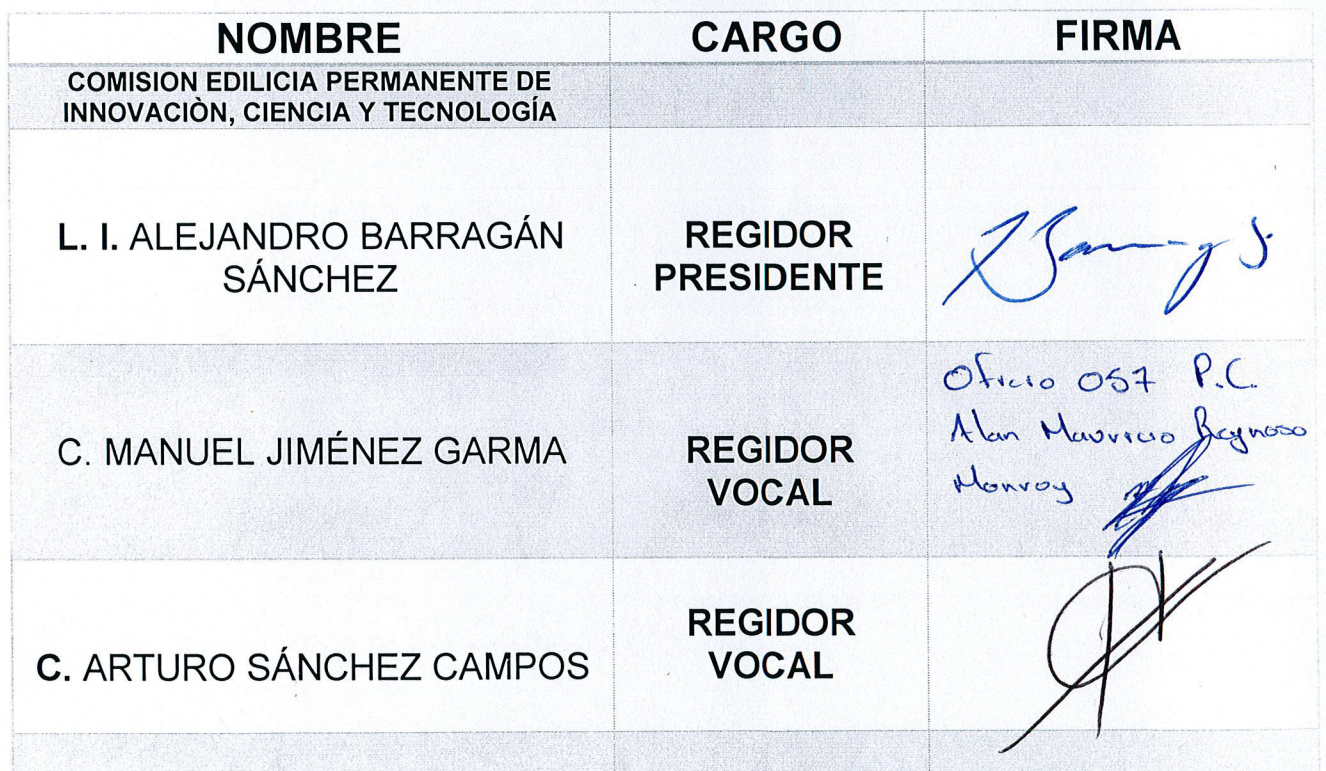 NOMBRE CARGO FIRMA
COMISION EDILICIA PERMANENTE DE
INNOVACIÒN, CIENCIA Y TECNOLOGÍA
L. I. ALEJANDRO BARRAGÁN
SÁNCHEZ
REGIDOR
PRESIDENTE
C. MANUEL JIMÉNEZ GARMA
REGIDOR
VOCAL
Oficio 057 P.C.
Alan Mauricio Reynoso
Monroy
C. ARTURO SÁNCHEZ CAMPOS
REGIDOR
VOCAL